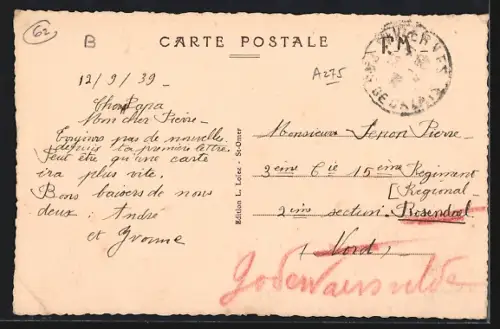 62
B
CARTE POSTALE
F.M
A275
PAS DE CALAIS
12/9/39
Cher Papa
Mon cher Pierre -
Toujours pas de nouvelles
depuis ta première lettre.
Peut être qu'une carte
ira plus vite.
Bons baisers de nous
deux : André
et Yvonne
Edition L. Lolez - St-Omer
Monsieur Pierre -
3ème Cie 15ème Régiment
Régional -
2ème section. Rosendael
(Nord)
Godewaersvelde